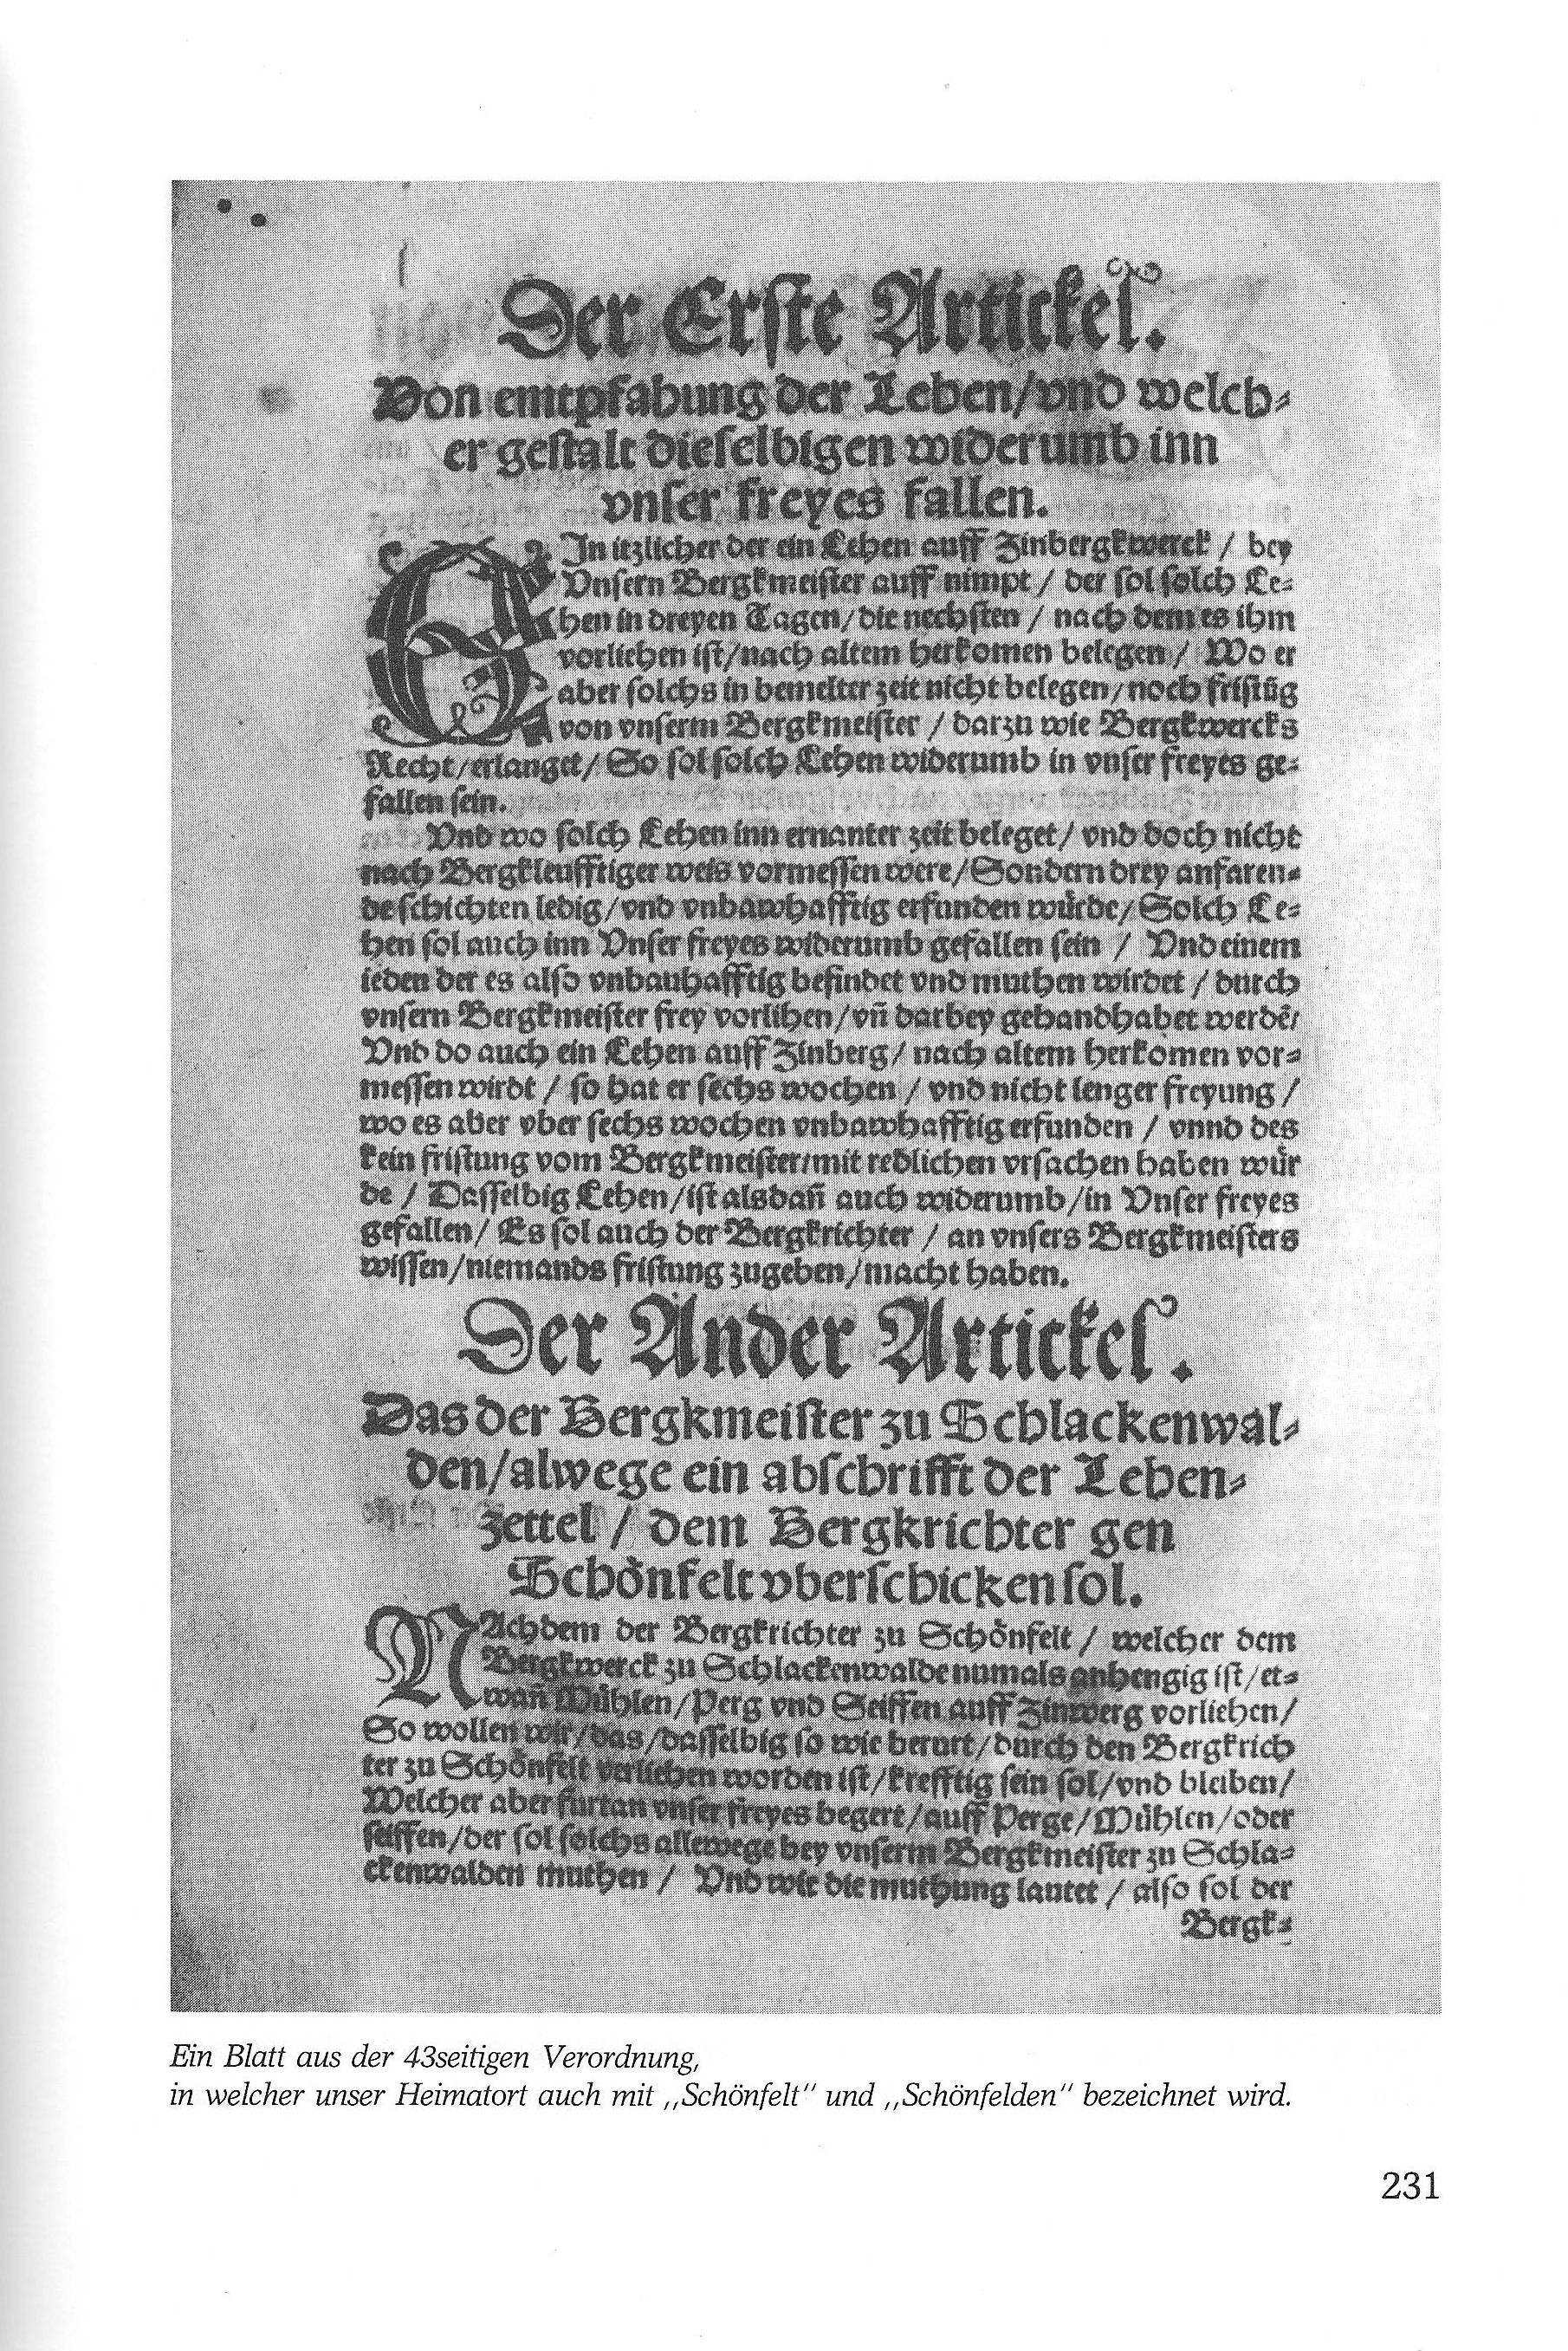 Der Erste Artickel.
Von emtpfahung der Lehen/vnd welch⸗
er gestalt dieselbigen widerumb inn
vnser freyes fallen.
EIn itzlicher der ein Lehen auff Zinbergkwerck / bey
Vnsern Bergkmeister auff nimpt / der sol solch Le⸗
hen in dreyen Tagen/die nechsten / nach dem es ihm
vorliehen ist/nach altem herkomen belegen / Wo er
aber solchs in bemelter zeit nicht belegen/noch fristũg
von vnserm Bergkmeister / darzu wie Bergkwercks
Recht/erlanget/ So sol solch Lehen widerumb in vnser freyes ge⸗
fallen sein.
Vnd wo solch Lehen inn ernanter zeit beleget/ vnd doch nicht
nach Bergkleufftiger weis vormessen were/Sondern drey anfaren⸗
de schichten ledig/vnd vnbawhafftig erfunden würde/ Solch Le⸗
hen sol auch inn Vnser freyes widerumb gefallen sein / Vnd einem
ieden der es also vnbauhafftig befindet vnd muthen wirdet / durch
vnsern Bergkmeister frey vorlihen/vñ darbey gehandhabet werdẽ/
Vnd do auch ein Lehen auff Zinberg/ nach altem herkomen vor⸗
messen wirdt / so hat er sechs wochen / vnd nicht lenger freyung /
wo es aber vber sechs wochen vnbawhafftig erfunden / vnnd des
kein fristung vom Bergkmeister/mit redlichen vrsachen haben wür
de / Dasselbig Lehen/ist alsdañ auch widerumb/in Vnser freyes
gefallen/ Es sol auch der Bergkrichter / an vnsers Bergkmeisters
wissen/niemands fristung zugeben/macht haben.
Der Ander Artickel.
Das der Bergkmeister zu Schlackenwal⸗
den/alwege ein abschrifft der Lehen⸗
zettel / dem Bergkrichter gen
Schönfelt vberschicken sol.
NAchdem der Bergkrichter zu Schönfelt / welcher dem
Bergkwerck zu Schlackenwalde numals anhengig ist/et⸗
wañ Mühlen/Perg vnd Seiffen auff Zinwerg vorliehen/
So wollen wir/das/dasselbig so wie berurt/durch den Bergkrich
ter zu Schönfelt verliehen worden ist/krefftig sein sol/vnd bleiben/
Welcher aber furtan vnser freyes begert/auff Perge/Mühlen/oder
seiffen/der sol solchs allewege bey vnserm Bergkmeister zu Schla⸗
ckenwalden muthen / Vnd wie die muthung lautet / also sol der
Bergk⸗
Ein Blatt aus der 43seitigen Verordnung,
in welcher unser Heimatort auch mit ,,Schönfelt" und ,,Schönfelden" bezeichnet wird.
231